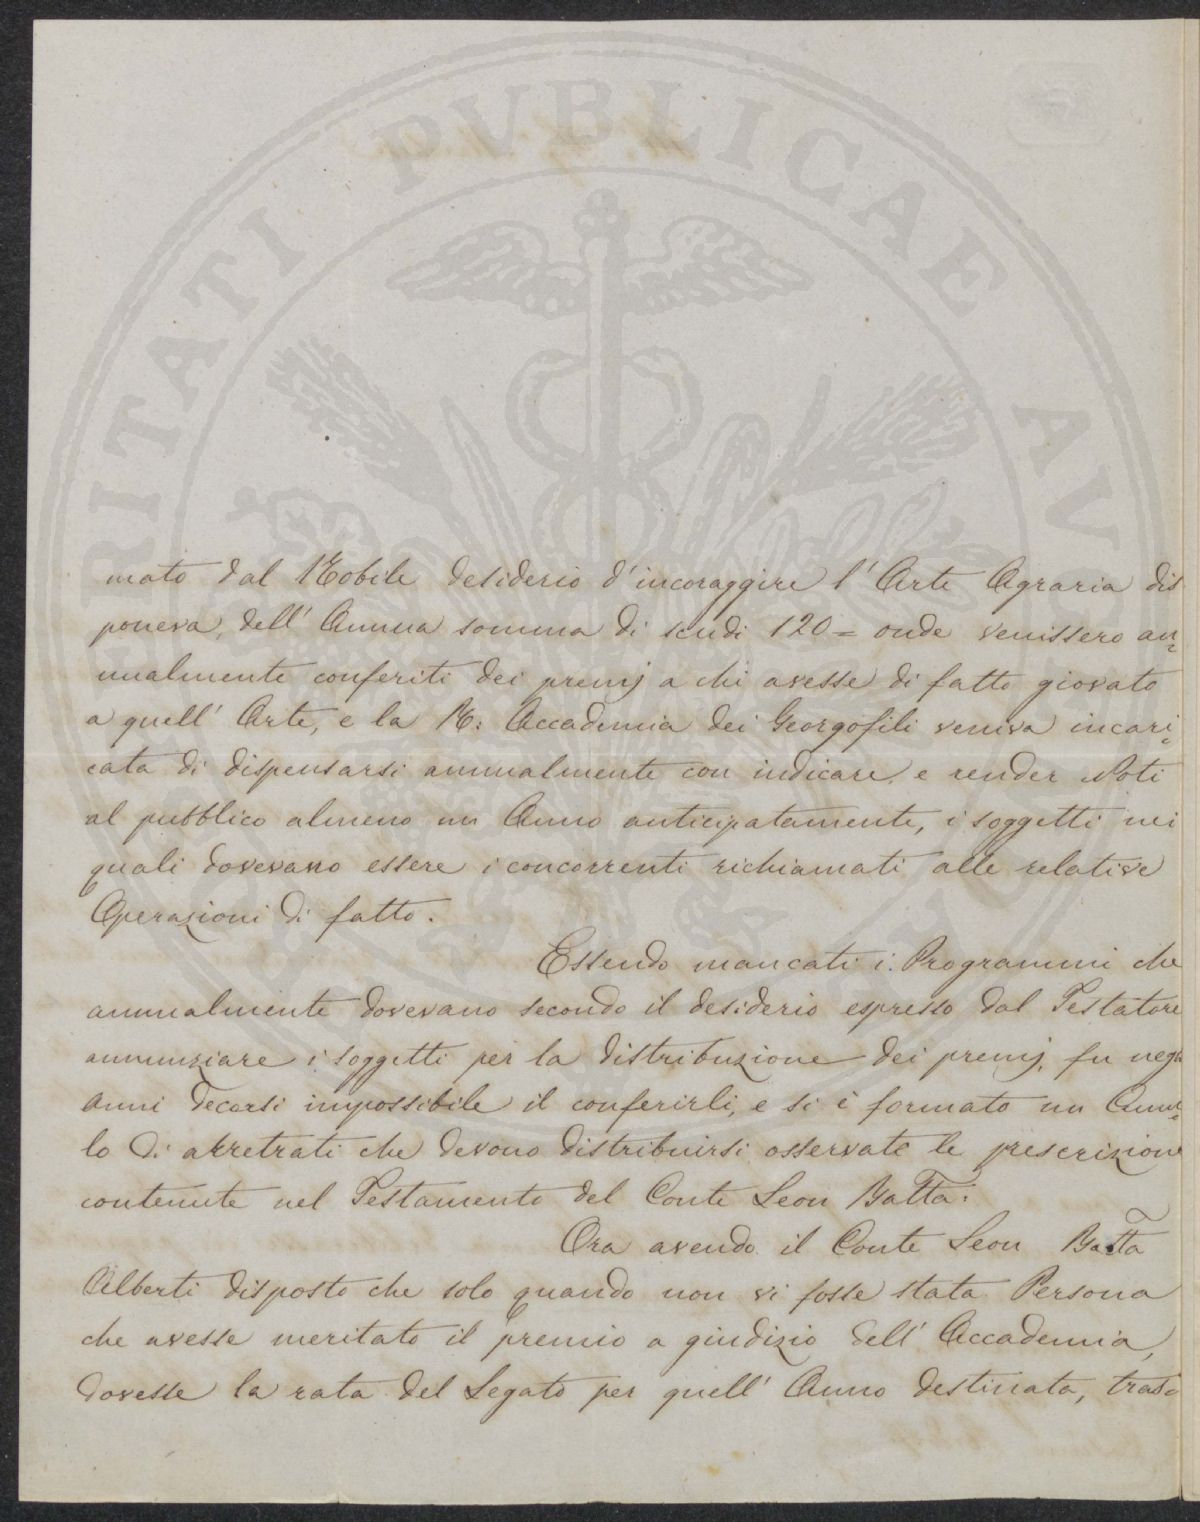 PROSPERITATI PUBLICAE AUGENDAE
mato dal Nobile desiderio d'incoraggire l'Arte Agraria dis
poneva, dell'Annua somma di scudi 120 = onde venissero an=
nualmente conferiti dei premj a chi avesse di fatto giovato
a quell'Arte, e la R: Accademia dei Georgofili veniva incari=
cata di dispensarsi annualmente con indicare, e render Noti
al pubblico almeno un Anno anticipatamente, i soggetti nei
quali dovevano essere i concorrenti richiamati alle relative
Operazioni di fatto.
Essendo mancati i Programmi che
annualmente dovevano secondo il desiderio espresso dal Testatore
annunziare i soggetti per la distribuzione dei premj, fu negli
Anni decorsi impossibile il conferirli, e si è formato un Cumu=
lo di arretrati che devono distribuirsi osservate le prescrizioni
contenute nel Testamento del Conte Leon Batta:
Ora avendo il Conte Leon Batta
Alberti disposto che solo quando non vi fosse stata Persona
che avesse meritato il premio a giudizio dell'Accademia,
dovesse la rata del Legato per quell'Anno destinata, tras=